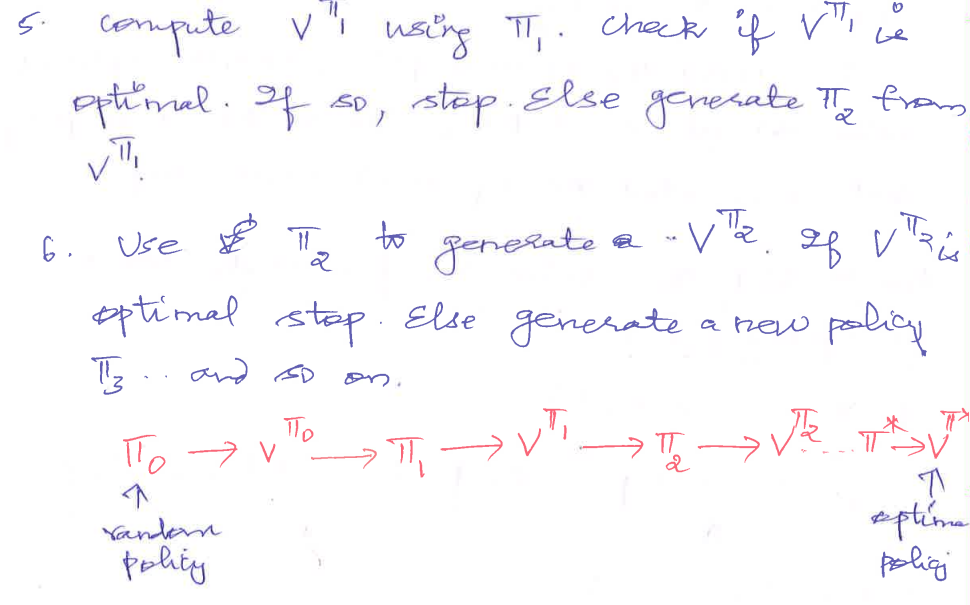 5. compute V^π₁ using π₁. check if V^π₁ is
optimal. If so, stop. Else generate π₂ from
V^π₁.
6. Use π₂ to generate a V^π₂. If V^π₂ is
optimal stop. Else generate a new policy
π₃ .. and so on.
π₀ → V^π₀ → π₁ → V^π₁ → π₂ → V^π₂ .... π* → V^π*
↑ ↑
random optima
policy policy